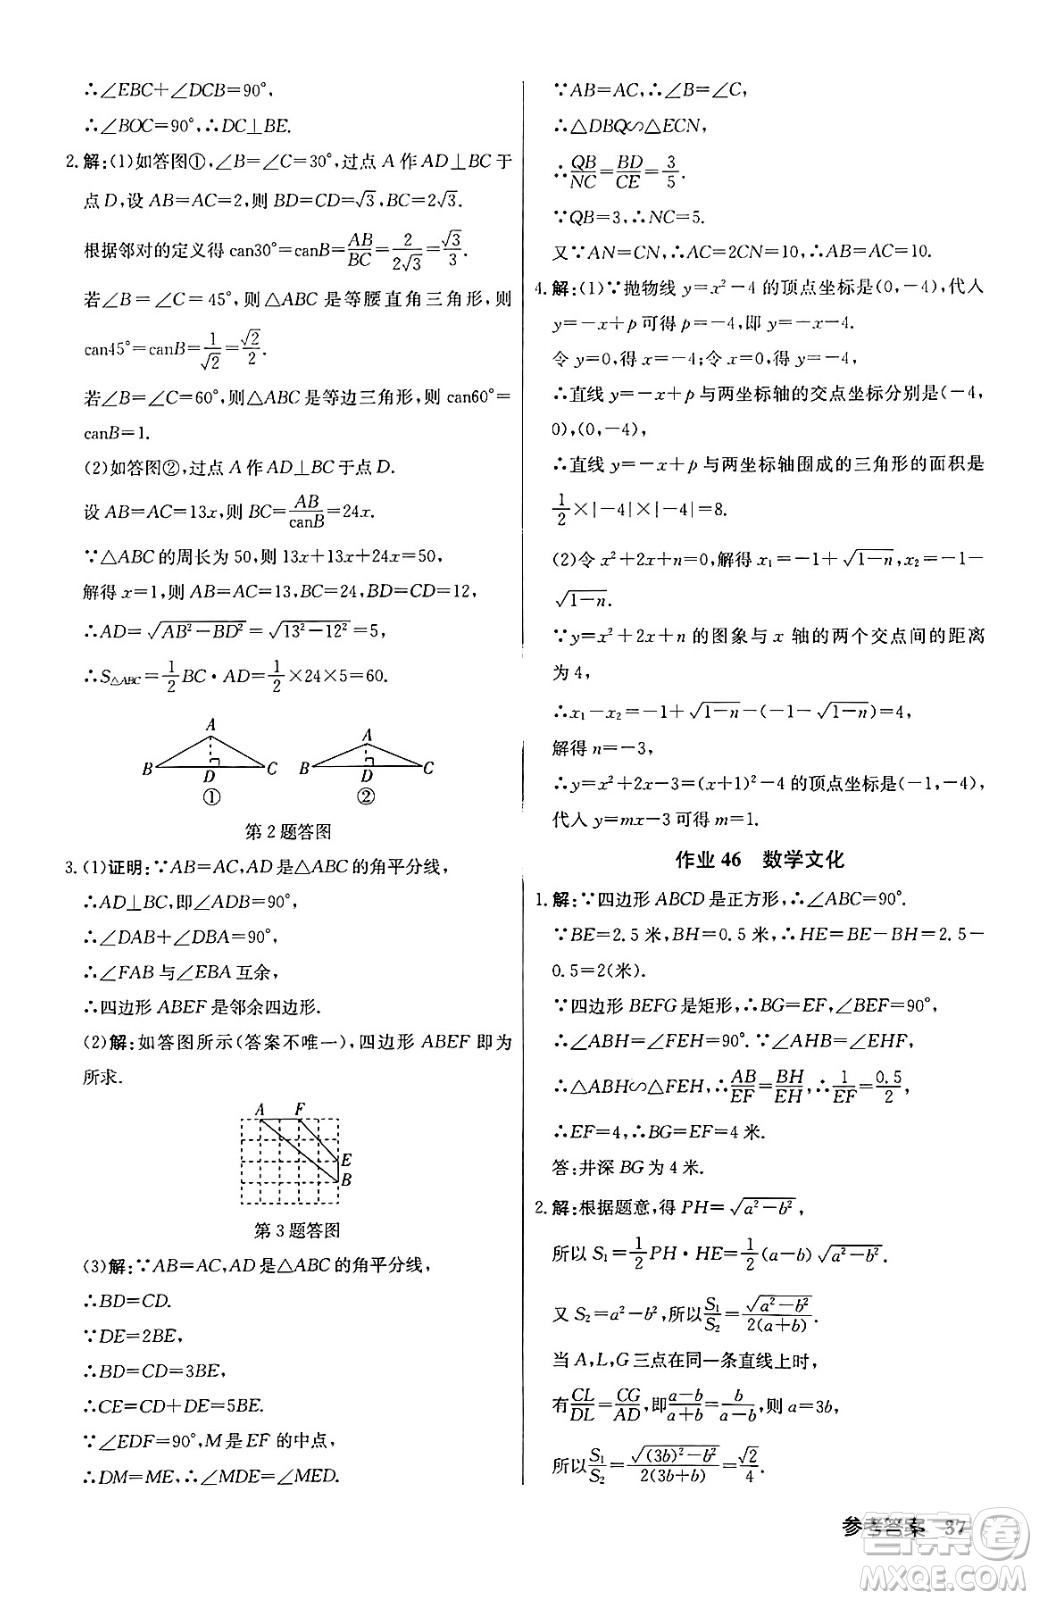 ∴∠EBC+∠DCB=90°,
∴∠BOC=90°,∴DC⊥BE.
2.解:(1)如答图①,∠B=∠C=30°,过点 A 作 AD⊥BC于
点 D,设 AB=AC=2,则 BD=CD=√3,BC=2√3.
根据邻对的定义得 can30°=canB=AB/BC=2/2√3=√3/3.
若∠B=∠C=45°,则△ABC是等腰直角三角形,
can45°=canB=1/√2=√2/2.
若∠B=∠C=60°,则△ABC是等边三角形,can60°=
canB=1.
(2)如答图②,过点 A 作 AD⊥BC于点 D.
设 AB=AC=13x,则 BC=AB/canB=24x.
∵△ABC 的周长为 50,则 13x+13x+24x=50,
解得 x=1,则 AB=13,BC=24,BD=CD=12,
∴AD=√(AB²-BD²)=√(13²-12²)=5,
∴S△ABC=1/2BC·AD=1/2×24×5=60.
A
B D C
①
A
B D C
②
第 2 题答图
3.(1)证明:∵AB=AC,AD是△ABC的角平分线,
∴AD⊥BC,即∠ADB=90°,
∴∠DAB+∠DBA=90°,
∴∠FAB与∠EBA互余,
∴四边形 ABEF是邻余四边形.
(2)解:如答图所示(答案不唯一),四边形 ABEF 即为
所求.
A F
E
B
第 3 题答图
(3)解:∵AB=AC,AD是△ABC的角平分线,
∴BD=CD.
∵DE=2BE,
∴BD=CD=3BE,
∴CE=CD+DE=5BE.
∵∠EDF=90°,M 是 EF 的中点,
∴DM=ME,∴∠MDE=∠MED.
∵AB=AC,∴∠B=∠C,
∴△DBQ∽△ECN,
∴QB/NC=BD/CE=3/5.
∵QB=3,∴NC=5.
又∵AN=CN,∴AC=2CN=10,∴AB=AC=10.
4.解:(1)∵抛物线 y=x²-4的顶点坐标是(0,-4),代人
y=-x+p 可得 p=-4,即 y=-x-4.
令 y=0,得 x=-4;令 x=0,得 y=-4,
∴直线 y=-x+p 与两坐标轴的交点分别是(-4,
0),(0,-4),
∴直线 y=-x+p 与两坐标轴围成的三角形的面积是
1/2×|-4|×|-4|=8.
(2)令 x²+2x+n=0,解得 x₁=-1+√(1-n),x₂=-1-
√(1-n).
∵y=x²+2x+n 的图象与 x 轴的两个交点间的距离
为 4,
∴x₁-x₂=-1+√(1-n)-(-1-√(1-n))=4,
解得 n=-3,
∴y=x²+2x-3=(x+1)²-4 的顶点坐标是(-1,-4),
代人 y=mx-3 可得 m=1.
作业 46 数学文化
1.解:∵四边形 ABCD是正方形,∴∠ABC=90°.
∵BE=2.5 米,BH=0.5 米,∴HE=BE-BH=2.5-
0.5=2(米).
∵四边形 BEFG 是矩形,∴BG=EF,∠BEF=90°,
∴∠ABH=∠FEH=90°.∵∠AHB=∠EHF,
∴△ABH∽△FEH,∴AB/EF=BH/EH,∴1/EF=0.5/2,
∴EF=4,∴BG=EF=4 米.
答:井深 BG 为 4 米.
2.解:根据题意,得 PH=√(a²-b²),
所以 S₁=1/2PH·HE=1/2(a-b)√(a²-b²).
又 S₂=a²-b²,所以S₁/S₂=√(a²-b²)/2(a+b).
当 A,L,G 三点在同一条直线上时,
有CL/DL=CG/AD,即(a-b)/(a+b)=b/(a-b),则 a=3b,
所以S₁/S₂=√((3b)²-b²)/2(3b+b)=√2/4.
参考答案 37
答案圈
MXQE.COM